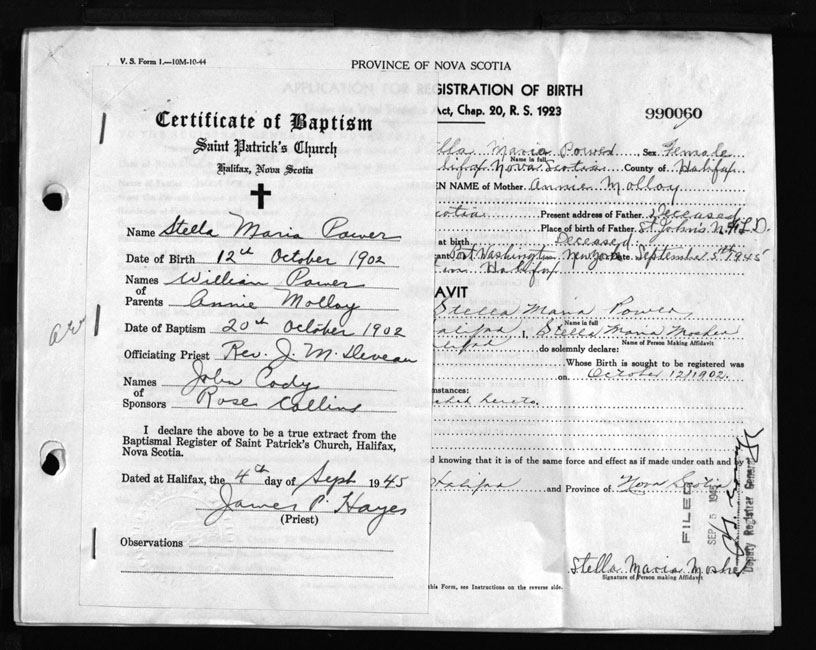 V. S. Form 1.—10M-10-44
PROVINCE OF NOVA SCOTIA
Certificate of Baptism
Saint Patrick's Church
Halifax, Nova Scotia
Name Stella Maria Power
Date of Birth 12th October 1902
Names of Parents William Power
Annie Molloy
Date of Baptism 20th October 1902
Officiating Priest Rev. J. M. Deveau
Names of Sponsors John Cody
Rose Collins
I declare the above to be a true extract from the
Baptismal Register of Saint Patrick's Church, Halifax,
Nova Scotia.
Dated at Halifax, the 4th day of Sept 1945
James P. Hayes
(Priest)
Observations
GISTRATION OF BIRTH
Act, Chap. 20, R. S. 1923
990060
lla Maria Power, Sex Female
Name in full
lifax Nova Scotia County of Halifax
EN NAME of Mother Annie Molloy
cotia Present address of Father Deceased
Place of birth of Father St. John's N.F.L.D.
at birth Deceased
ant Port Washington New York Date September 5th 1945
in Halifax
AVIT
Stella Maria Power
Name in full
alifax I, Stella Maria Mosher
Name of Person Making Affidavit
alifax do solemnly declare:
Whose Birth is sought to be registered was
on October 12/1902.
mstances:
d knowing that it is of the same force and effect as if made under oath and
Halifax and Province of Nova Scotia
FILED
SEP 5 194
Deputy Registrar General
Stella Maria Moshe
Signature of Person making Affidavit
this Form, see Instructions on the reverse side.